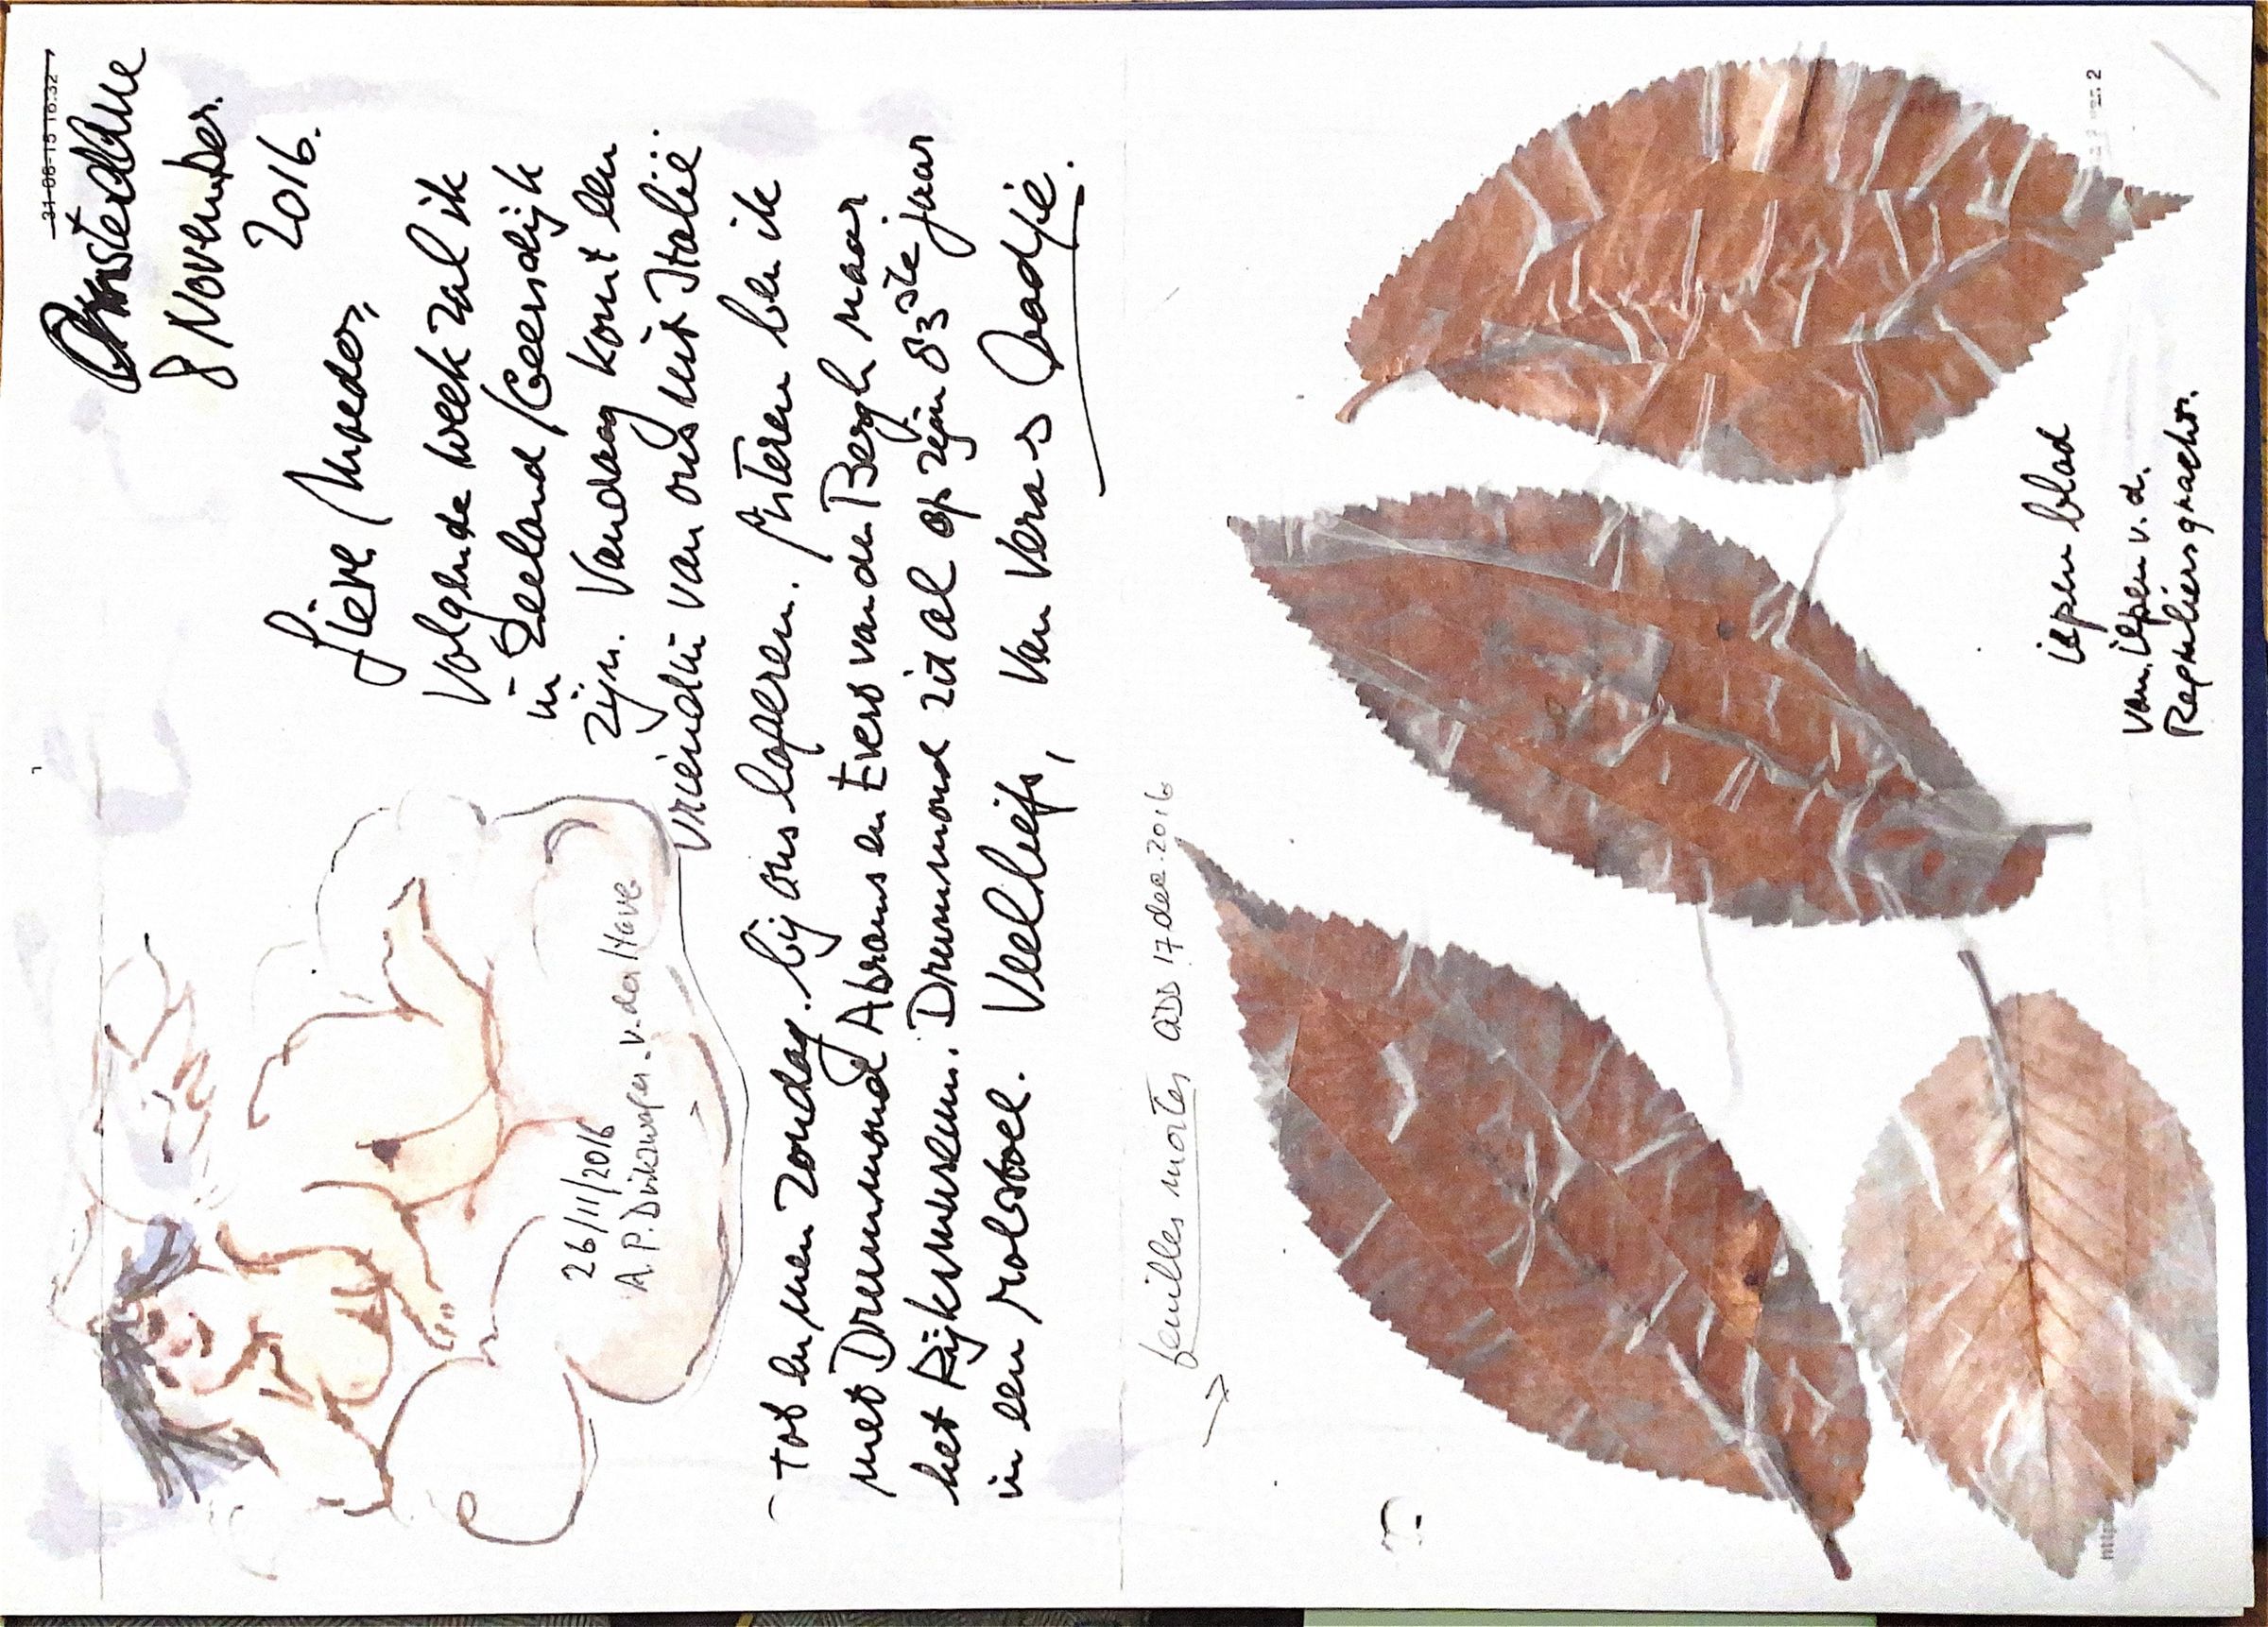 31-08-15 16:32
Amsterdam
8 November.
2016.
Lieve Moeder,
Volgende week zal ik
in Zeeland / Geersdijk
zijn. Vandaag komt een
vriendin van ons uit Italië.
tot en men Zondag. bij ons logeren. Gisteren ben ik
met Drummond Abrams en Evers van den Bergh naar
het Rijksmuseum. Drummond zit al op zijn 83ste jaar
in een rolstoel. Veel liefs, van Veras Aadje.
26/11/2016
A.P. Dirkzwager. v. der Have
feuilles mortes ADD 17 dec. 2016
iepen blad
van iepen v.d.
Reguliersgracht.
http
2 van 2